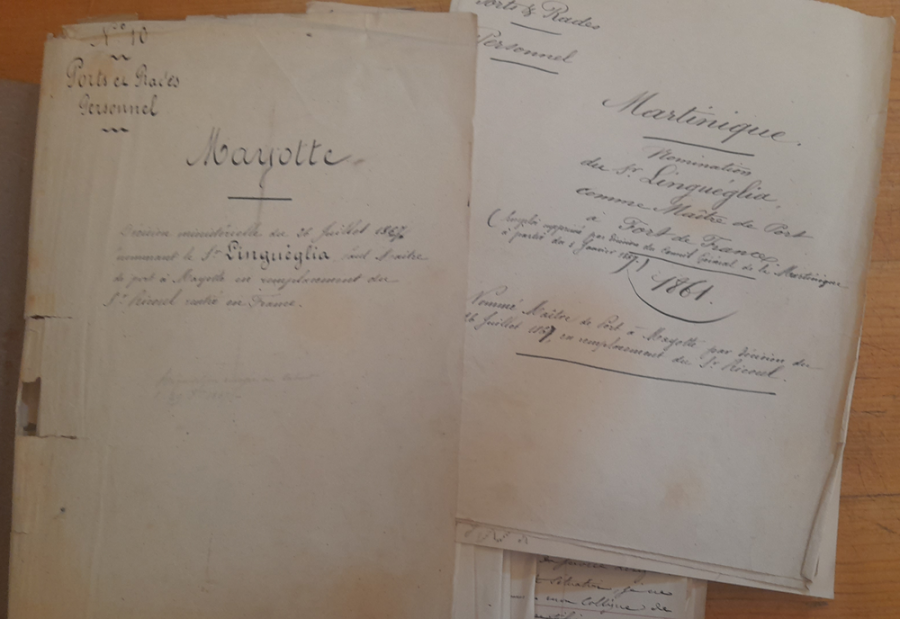 N° 10
Ports et Rades
Personnel
Mayotte
Décision ministérielle du 26 Juillet 1867
nommant le Sr. Linguéglia Maître
de port à Mayotte en remplacement du
Sr. Ricoul rentré en France.
Ports & Rades
Personnel
Martinique.
Nomination
du Sr. Linguéglia
comme Maître de Port
à
Fort de France
(Emploi supprimé par décision du Conseil Général de la Martinique
à partir du 1 Janvier
1861.
Nommé Maître de Port à Mayotte par décision du
26 Juillet 1867, en remplacement du Sr. Ricoul.
mon collègue de